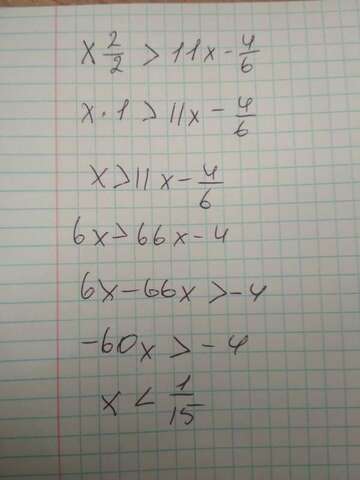 x 2/2 > 11x - 4/6
x · 1 > 11x - 4/6
x > 11x - 4/6
6x > 66x - 4
6x - 66x > -4
-60x > -4
x < 1/15